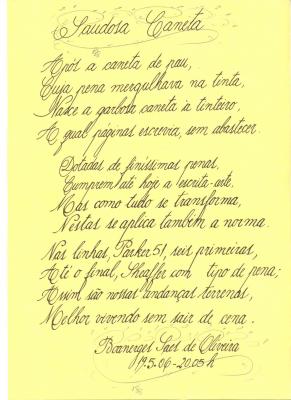 Saudosa Caneta
Após a caneta de pau,
Cuja pena mergulhava na tinta,
Nasce a garbosa caneta à tinteiro,
A qual páginas escrevia, sem abastecer.
Dotadas de finíssimas penas,
Cumprem até hoje a escrita-arte.
Mas como tudo se transforma,
Nestas se aplica também a norma.
Nas linhas, Parker 51, seis primeiras,
Até o final, Sheaffer com tipo de pena;
Assim são nossas andanças terrenas,
Melhor vivendo sem sair de cena.
Boanerges Saes de Oliveira
19.5.06-20:05 h